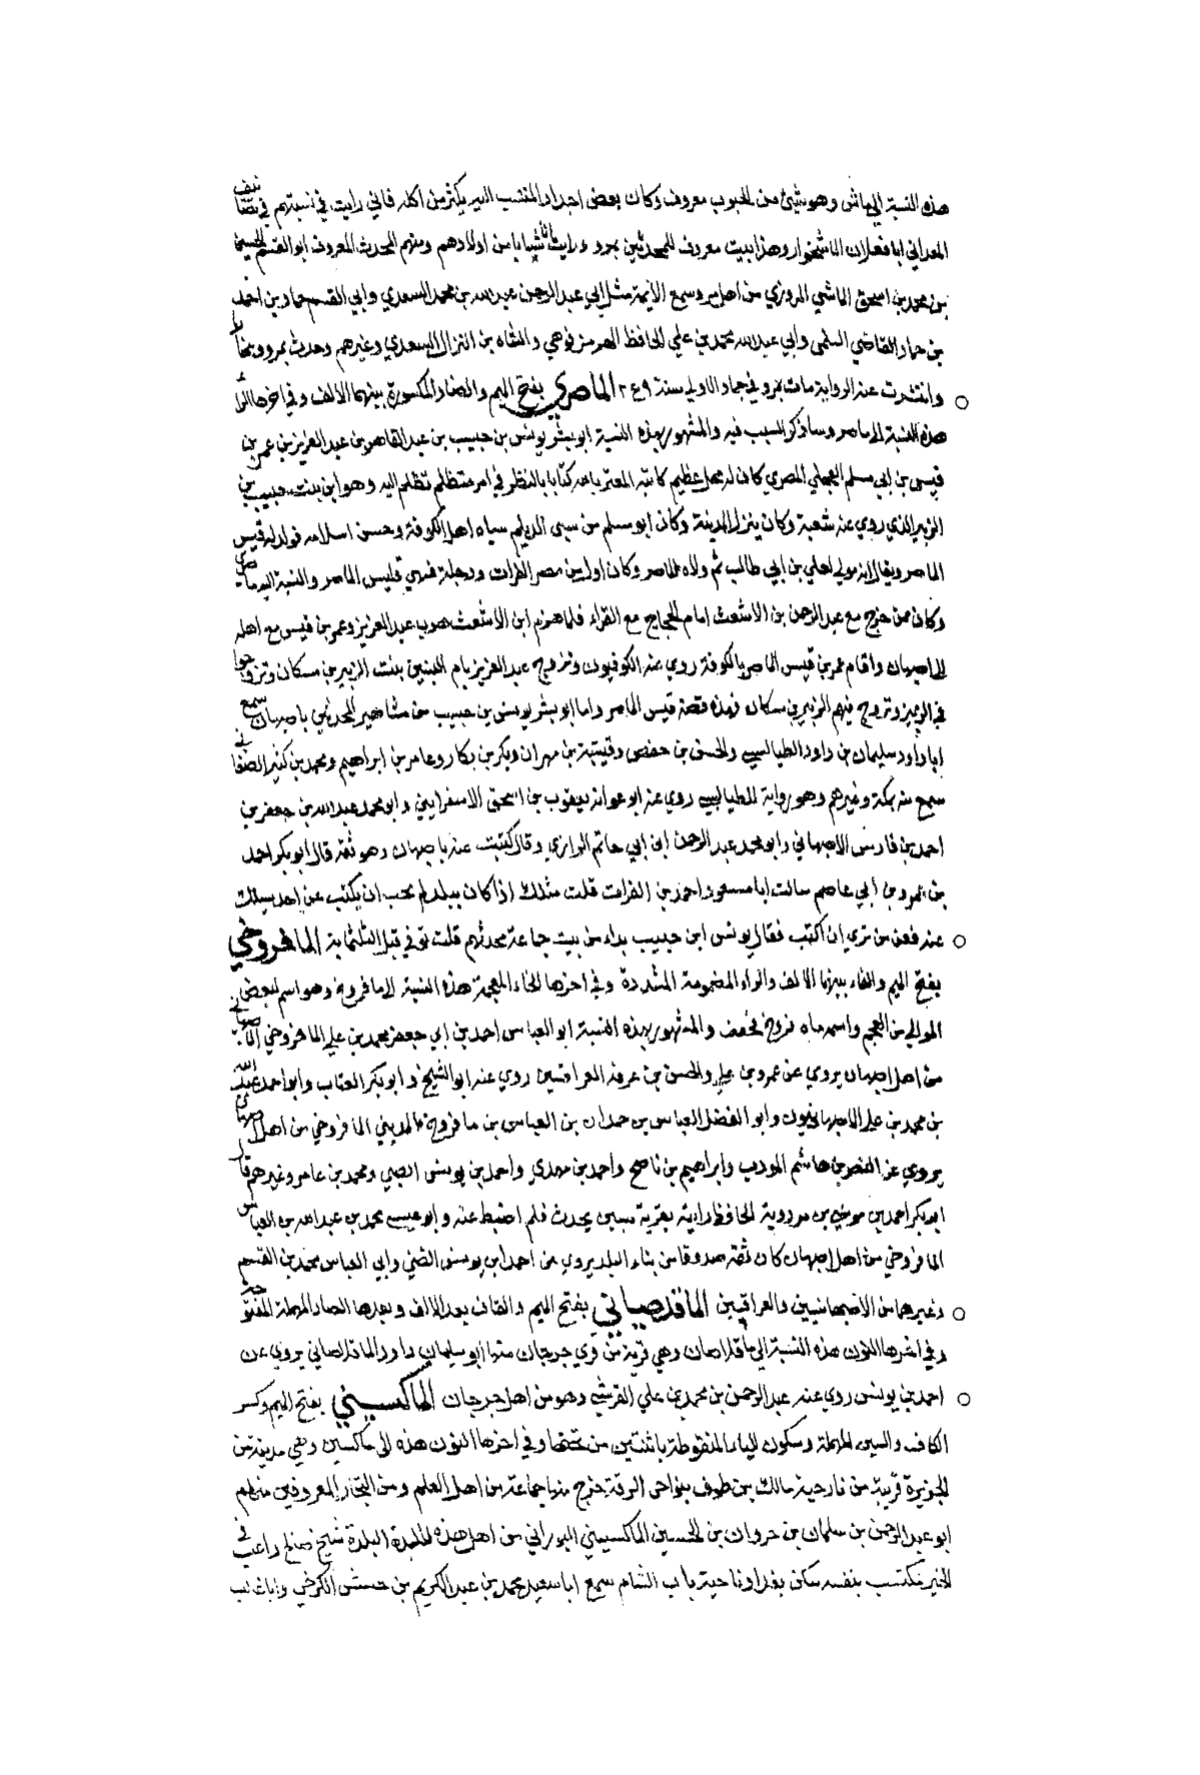 هذه النسبة الى ماش وهو شيئ من الحبوب معروف وكان بعض اجداد المنتسب اليه يكثر من اكله فاني رايت في نسبتهم في تصانيف
المعداني ابا فعلان الماشخوار وهذا بيت معروف للمحدثين بمرو ورايت انا شيابا من اولادهم ومنهم المحدث المعروف ابو القسم الحسين
بن محمد بن اسحق الماشي المروزي من اهل مرو سمع الايمة مثل ابي عبد الرحمن عبد الله بن محمد السعدي وابي القسم حماد بن احمد
بن حماد القاضي السلمى وابي عبد الله محمد بن علي الحافظ الهرمزفوهي والشاه بن النزال السعدي وغيرهم وحدث بمرو وبخارا
وانتشرت عنه الرواية مات بمرو في جماد الاولي سنة ٣٤٩ الماصري بفتح الميم والصاد المكسورة بينهما الالف وفي اخرها الرا
هذه النسبة الى ماصر وساذكر السبب فيه والمشهور بهذه النسبة ابو بشر يونس بن حبيب بن عبد القاهر بن عبد العزيز بن عمر بن
قيس بن ابي مسلم العجلي المصري كان له محل عظيم كاتبه المعتز بالله كتابا بالنظر في امر متظلم تظلم اليه وهو ابن بنت حبيب بن
الزبير الذي روي عنه شعبة وكان ينزل المدينة وكان ابو مسلم من سبى الديلم سباه اهل الكوفة وحسن اسلامه فولد له قيس
الماصر ويقال انه مولي لعلي بن ابي طالب ثم ولاه الماصر وكان اول من مصر الفرات ودجلة فسمي قيس الماصر والنسبة اليه ماصري
وكان ممن خرج مع عبد الرحمن بن الاشعث امام الحجاج مع القراء فلما هزم ابن الاشعث هرب عبد العزيز وعمر بن قيس مع اهله
الى اصبهان واقام عمر بن قيس الماصر بالكوفة روي عنه الكوفيون وتزوج عبد العزيز بام البنين بنت الزبير بن مسكان وتزوجوا
في الزبير وتزوج فيهم الزبير بن مسكان فهذه قصة قيس الماصر واما ابو بشر يونس بن حبيب من مشاهير المحدثين باصبهان سمع
ابا داود سليمان بن داود الطيالسي والحسن بن حفص وقتيبة بن مهران وبكر بن بكار وعامر بن ابراهيم ومحمد بن كثير الصنعاني
سمع منه بمكة وغيرهم وهو رواية للطيالسي روي عنه ابو عوانة يعقوب بن اسحق الاسفرايني وابو محمد عبد الله بن جعفر بن
احمد بن فارس الاصبهاني وابو محمد عبد الرحمن ابن ابي حاتم الرازي وقال كتبت عنه باصبهان وهو ثقة قال ابو بكر احمد
بن عمرو بن أبي عاصم سالت ابا مسعود احمد بن الفرات قلت مثلك اذا كان ببلد لم يحب ان يكتب عن احد يسئلك
عنه فعن من تري ان اكتب فقال يونس ابن حبيب بداء من بيت جماعة محدثهم قلت توفي قبل الثلثماية المافروخي
بفتح الميم والفاء بينهما الالف والراء المضمومة المشددة وفي اخرها الخاء المعجمة هذه النسبة الى مافروخ وهو اسم لبعض
الموالي من العجم واسمه ماه فروخ فخفف والمشهور بهذه النسبة ابو العباس احمد بن ابي جعفر محمد بن علي المافروخي الاصبهاني
من اهل اصبهان يروي عن عمرو بن علي والحسن بن عرفة العراقيين روي عنه ابو الشيخ وابو بكر العتاب وابو احمد عبد الله
بن محمد بن علي الاصبهانيون وابو الفضل العباس بن حمدان بن العباس بن مافروخ المديني المافروخي من اهل اصبهان
يروي عن النضر بن هاشم المودب وابراهيم بن ناصح واحمد بن مهدي واحمد بن يونس الضبي ومحمد بن عامر وغيرهم قال
ابو بكر احمد بن موسي بن مردوية الحافظ رايته بقرية سين يحدث فلم اضبط عنه وابو عيسي محمد بن عبد الله بن العباس
المافروخي من اهل اصبهان كان ثقة صدوقا من بناء البلد يروي عن احمد ابن يونس الضبي وابي العباس محمد بن القسم
وغيرهما من الاصبهانيين والعراقيين الماقلاصاني بفتح الميم والقاف بعد الالف وبعدها الصاد المهملة المفتوحة
وفي اخرها النون هذه النسبة الى ماقلاصان وهي قرية من قري جرجان منها ابو سليمان داود الماقلاصاني يروي عن
احمد بن يونس روي عنه عبد الرحمن بن محمد بن علي القرشي وهو من اهل جرجان الماكسيني بفتح الميم وكسر
الكاف والسين المهملة وسكون الياء المنقوطة باثنتين من تحتها وفي اخرها النون هذه الى ماكسين وهي مدينة من
الجزيرة قريبة من رحبة مالك بن طوق بنواحى الرقة خرج منها جماعة من اهل العلم ومن التجار المعروفين منهم
ابو عبد الرحمن بن سلمان بن مروان بن الحسين الماكسيني البوراني من اهل هذه البلدة شيخ صالح راغب في
الخير مكتسب بنفسه سكن بغداد ناحية باب الشام سمع ابا سعيد محمد بن عبد الكريم بن خشيش الكرخي